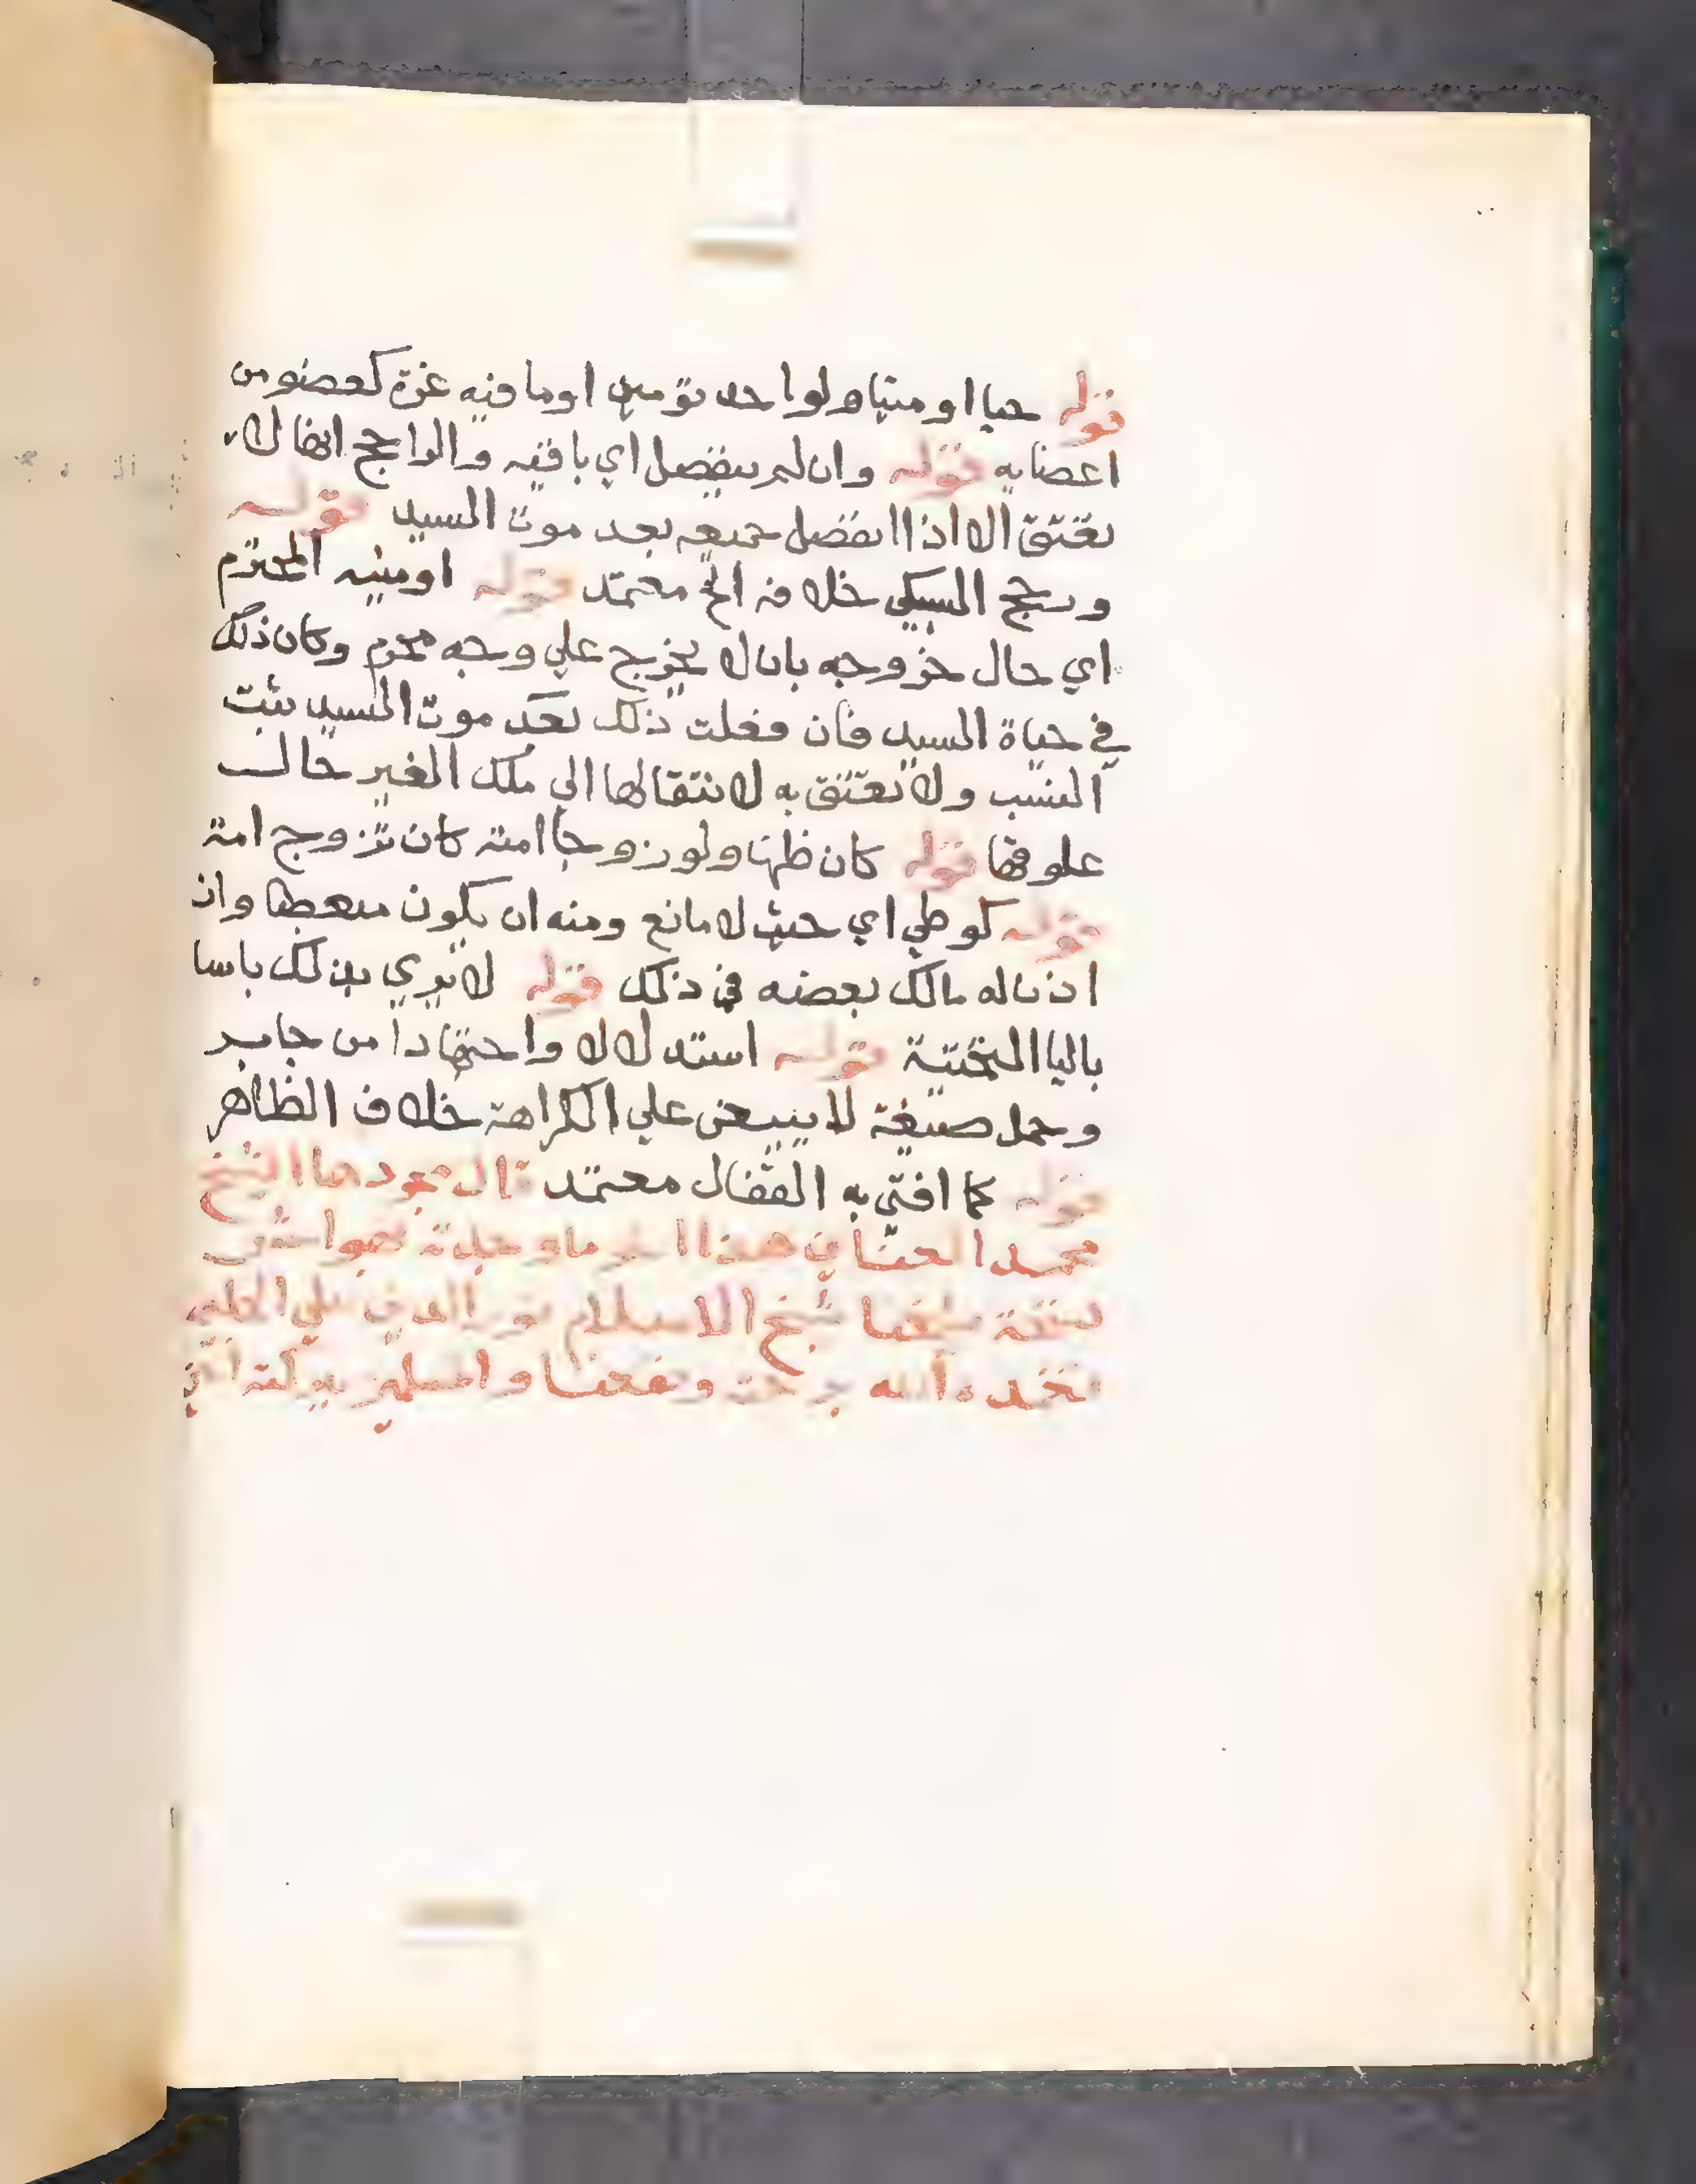 قوله حيا او ميتا ولواحد تومين او ما فيه غرة كعضو من
اعضايه قوله وان لم ينفصل اي باقيه والراجح انها لا
تعتق الا اذا انفصل جميعه بعد موت السيد قوله
ورجح السبكي خلافه الخ معتمد قوله او منيه المحترم
اي حال خروجه بان لا يخرج علي وجه محرم وكان ذلك
في حياة السيد فان فعلت ذلك بعد موت السيد ثبت
النسب ولا تعتق به لانتقالها الي ملك الغير حال
علوقها قوله كان ظنها ولو زوجا امته كان تزوج امة
قوله كوطي اي حيث لا مانع ومنه ان يكون مبعضا وان
اذن له مالك بعضه في ذلك قوله لا يري بذلك باسا
باليا التحتية قوله استدلالا واجتهادا من جابر
وحمل صيغة لا يبيعن علي الكراهة خلاف الظاهر
قوله كما افتي به القفال معتمد قال مجردها الشيخ
محمد العناني هذا اخر ما وجدته بحواشي
نسخة شيخنا شيخ الاسلام نور الدين علي الحلبي
تغمده الله برحمته ونفعنا والمسلمين ببركته امين